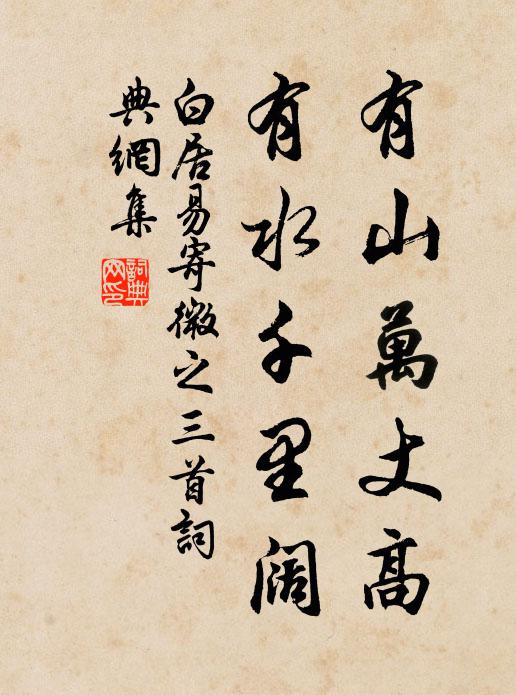 有山萬丈高
有水千里闊
白居易寄微之三首詞
典網集
詞典
网印